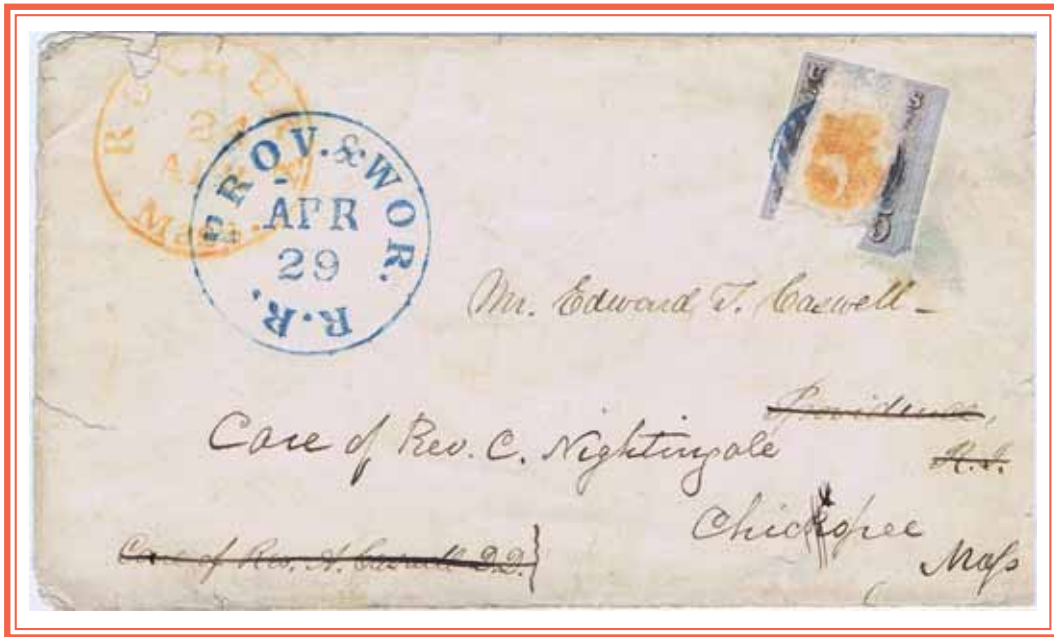 PROV. & WOR. R.R.
APR
29
5
Mr. Edward T. Caswell -
Providence,
R.I.
Care of Rev. C. Nightingale
Chickopee
Mass
Care of Rev. A. Caswell D.D.